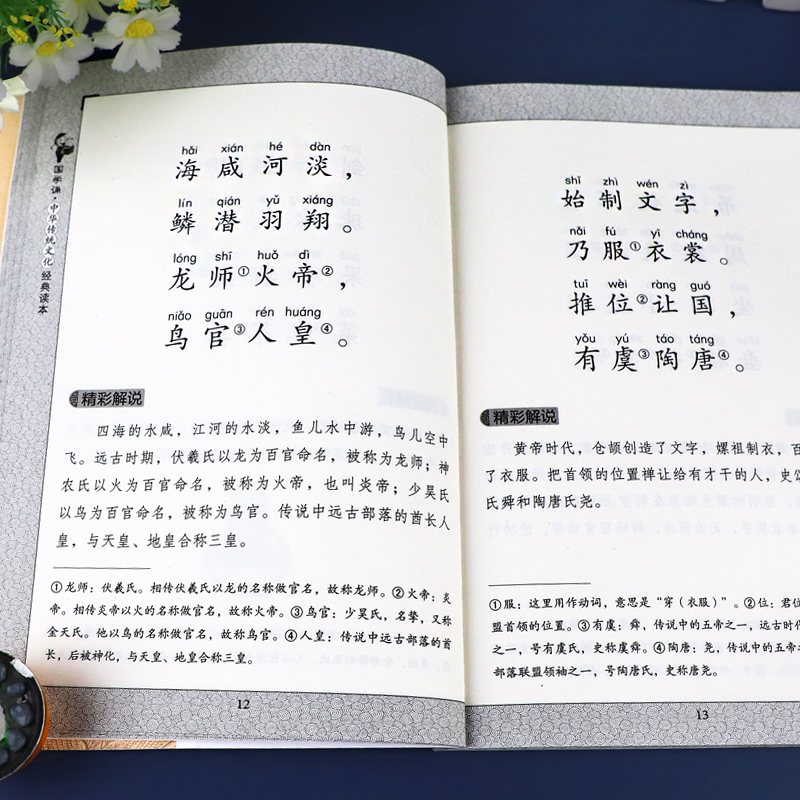 国学诵·中华传统文化经典读本
hǎi xián hé dàn
海咸河淡，
lín qián yǔ xiáng
鳞潜羽翔。
lóng shī huǒ dì
龙师①火帝②，
niǎo guān rén huáng
鸟官③人皇④。
精彩解说
四海的水咸，江河的水淡，鱼儿水中游，鸟儿空中
飞。远古时期，伏羲氏以龙为百官命名，被称为龙师；神
农氏以火为百官命名，被称为火帝，也叫炎帝；少昊氏
以鸟为百官命名，被称为鸟官。传说中远古部落的酋长人
皇，与天皇、地皇合称三皇。
①龙师：伏羲氏。相传伏羲氏以龙的名称做官名，故称龙师。②火帝：炎
帝。相传炎帝以火的名称做官名，故称火帝。③鸟官：少昊氏，名挚，又称
金天氏。他以鸟的名称做官名，故称鸟官。④人皇：传说中远古部落的酋
长，后被神化，与天皇、地皇合称三皇。
12
shǐ zhì wén zì
始制文字，
nǎi fú yī cháng
乃服①衣裳。
tuī wèi ràng guó
推位②让国，
yǒu yú táo táng
有虞③陶唐④。
精彩解说
黄帝时代，仓颉创造了文字，嫘祖制衣，百
了衣服。把首领的位置禅让给有才干的人，史
氏舜和陶唐氏尧。
①服：这里用作动词，意思是“穿（衣服）”。②位：君位
盟首领的位置。③有虞：舜，传说中的五帝之一，远古时代
之一，号有虞氏，史称虞舜。④陶唐：尧，传说中的五帝之
部落联盟领袖之一，号陶唐氏，史称唐尧。
13